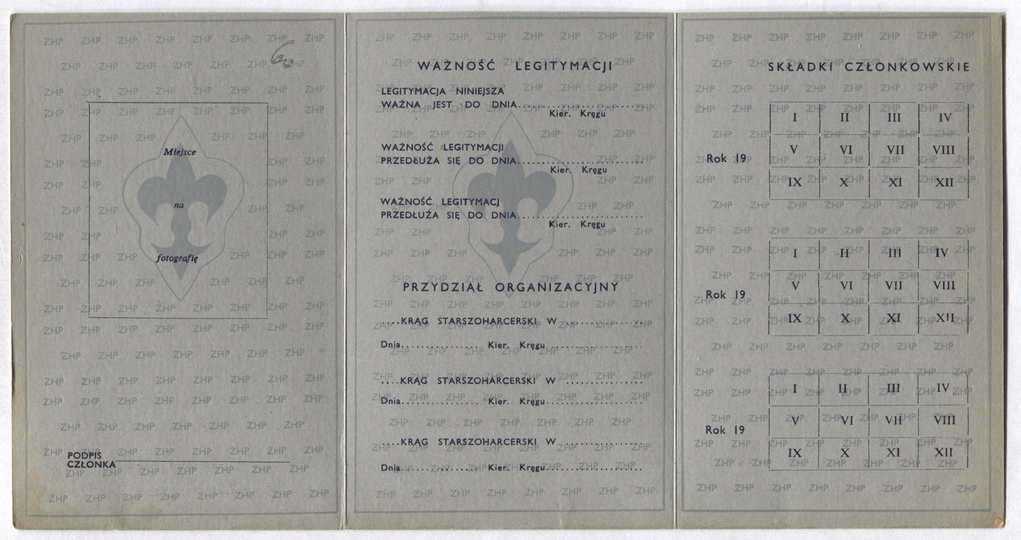 Miejsce
na
fotografię
PODPIS
CZŁONKA
WAŻNOŚĆ LEGITYMACJI
LEGITYMACJA NINIEJSZA
WAŻNA JEST DO DNIA....................
Kier. Kręgu
WAŻNOŚĆ LEGITYMACJI
PRZEDŁUŻA SIĘ DO DNIA....................
Kier. Kręgu
WAŻNOŚĆ LEGITYMACJ
PRZEDŁUŻA SIĘ DO DNIA....................
Kier. Kręgu
PRZYDZIAŁ ORGANIZACYJNY
....KRĄG STARSZOHARCERSKI W ................
Dnia.................. Kier. Kręgu....................
....KRĄG STARSZOHARCERSKI W ................
Dnia.................. Kier. Kręgu....................
....KRĄG STARSZOHARCERSKI W ................
Dnia.................. Kier. Kręgu....................
SKŁADKI CZŁONKOWSKIE
I II III IV
Rok 19 V VI VII VIII
IX X XI XII
I II III IV
Rok 19 V VI VII VIII
IX X XI XII
I II III IV
Rok 19 V VI VII VIII
IX X XI XII